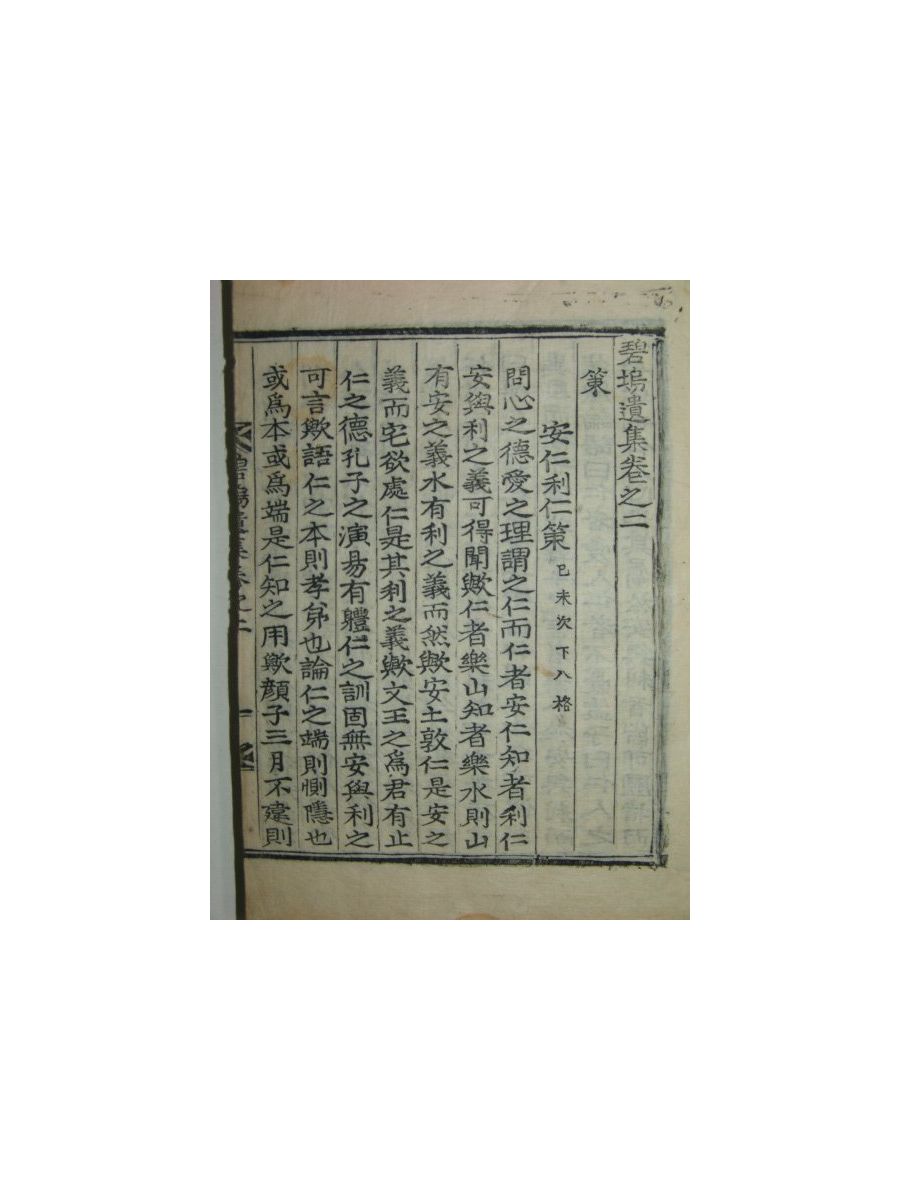 碧塢遺集卷之二
策
安仁利仁策 己未次下八格
問心之德愛之理謂之仁而仁者安仁知者利仁
安與利之義可得聞歟仁者樂山知者樂水則山
有安之義水有利之義而然歟安土敦仁是安之
義而宅欲處仁是其利之義歟文王之爲君有止
仁之德孔子之演易有體仁之訓固無安與利之
可言歟語仁之本則孝弟也論仁之端則惻隱也
或爲本或爲端是仁知之用歟顔子三月不違則
碧塢遺集卷之二 一